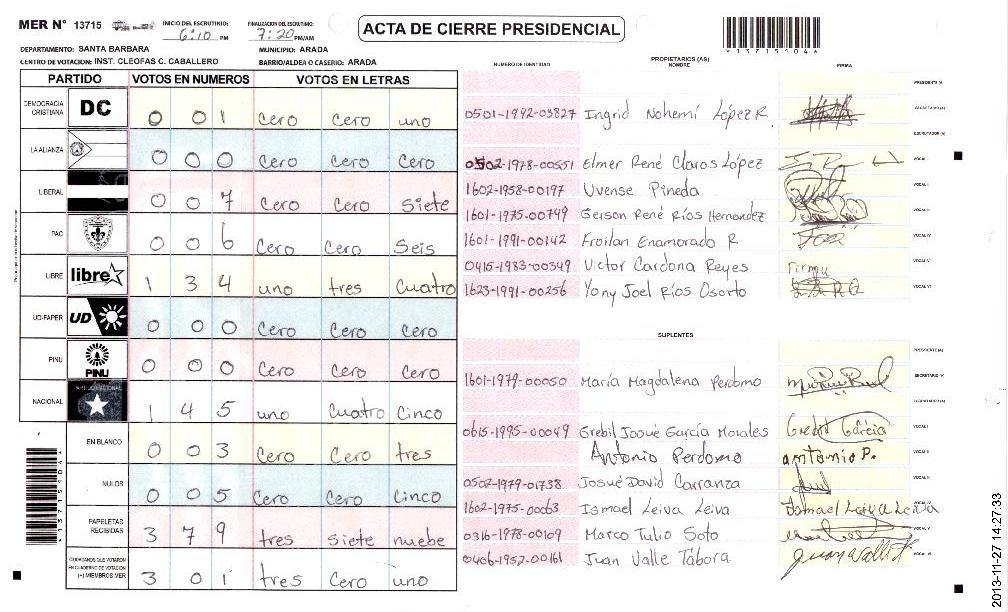 MER N° 13715
INICIO DEL ESCRUTINIO: 6:10 PM
FINALIZACION DEL ESCRUTINIO: 7:20 PM/AM
ACTA DE CIERRE PRESIDENCIAL
*137151046*
DEPARTAMENTO: SANTA BARBARA
MUNICIPIO: ARADA
CENTRO DE VOTACION: INST. CLEOFAS C. CABALLERO
BARRIO/ALDEA O CASERIO: ARADA
PARTIDO VOTOS EN NUMEROS VOTOS EN LETRAS
DEMOCRACIA CRISTIANA DC 0 0 1 cero cero uno
LA ALIANZA 0 0 0 cero cero cero
LIBERAL 0 0 7 cero cero siete
PAC 0 0 6 cero cero seis
LIBRE libre 1 3 4 uno tres cuatro
UD-FAPER UD 0 0 0 cero cero cero
PINU PINU 0 0 0 cero cero cero
NACIONAL 1 4 5 uno cuatro cinco
EN BLANCO 0 0 3 cero cero tres
NULOS 0 0 5 cero cero cinco
PAPELETAS RECIBIDAS 3 7 9 tres siete nuebe
CIUDADANOS QUE VOTARON EN CUADERNO DE VOTACION (+) MIEMBROS MER 3 0 1 tres cero uno
NUMERO DE IDENTIDAD
PROPIETARIOS (AS)
NOMBRE
FIRMA
PRESIDENTE (A)
0501-1992-03827 Ingrid Nohemí López R. SECRETARIO (A)
ESCRUTADOR (A)
0502-1978-00551 Elmer René Claros López VOCAL I
1602-1958-00197 Uvense Pineda VOCAL II
1601-1975-00749 Gerson René Ríos Hernandez VOCAL III
1601-1991-00142 Froilan Enamorado R VOCAL IV
0415-1983-00349 Victor Cardona Reyes Firma VOCAL V
1623-1991-00256 Yony Joel Ríos Osorto VOCAL VI
SUPLENTES
PRESIDENTE (A)
1601-1979-00050 María Magdalena Perdomo SECRETARIO (A)
ESCRUTADOR (A)
0615-1995-00049 Grebil Josué García Morales Grebil García VOCAL I
Antonio Perdomo antonio P. VOCAL II
0502-1979-01738 Josué David Carranza VOCAL III
1602-1975-00063 Ismael Leiva Leiva Ismael Leiva Leiva VOCAL IV
0316-1978-00109 Marco Tulio Soto VOCAL V
0406-1957-00161 Juan Valle Tabora VOCAL VI
2013-11-27 14:27:33